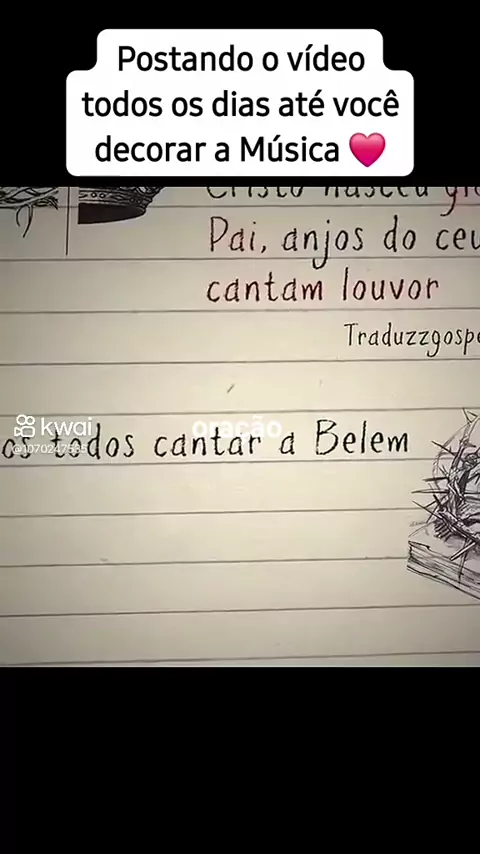 Postando o vídeo
todos os dias até você
decorar a Música ❤️
Cristo nasceu
Pai, anjos do
cantam louvor
kwai
oração
os todos cantar a Belem